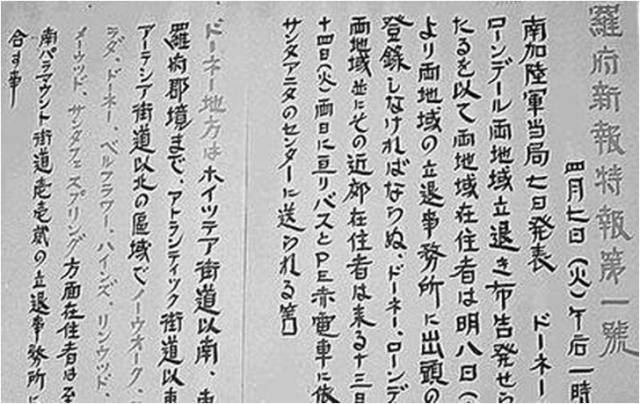 羅府新報特報第一號
四月七日(火)午后一時
南加陸軍当局七日発表 ドーネー
ローンデール両地域立退き布告発せら
たるを以て両地域在住者は明八日(
より両地域の立退事務所に出頭の
登録しなければならぬ、ドーネー、ローンデ
両地域並にその近郊在住者は来る十三日
十四日(火)両日に亘りバスとPE赤電車に依
サンタアニタのセンターに送られる筈
ドーネー地方はホイツテア街道以南、東
羅府郡境まで、アトランティック街道以東
アーテシア街道以北の區域でノーウオーク、
ラダ、ドーネー、ベルフラワー、ハインズ、リンウッド、
メーウッド、サンタフェスプリング方面在住者は至
南パラマウント街道壱壱貳の立退事務所に
合す事